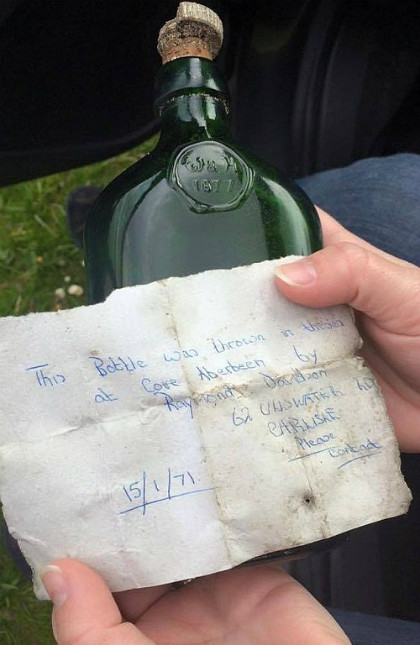 1877
This Bottle was thrown in thesea
at Cove Aberdeen by
Raymond Davidson
62 ULLSWATER RD
CARLISLE
Please
Contact
15/1/71